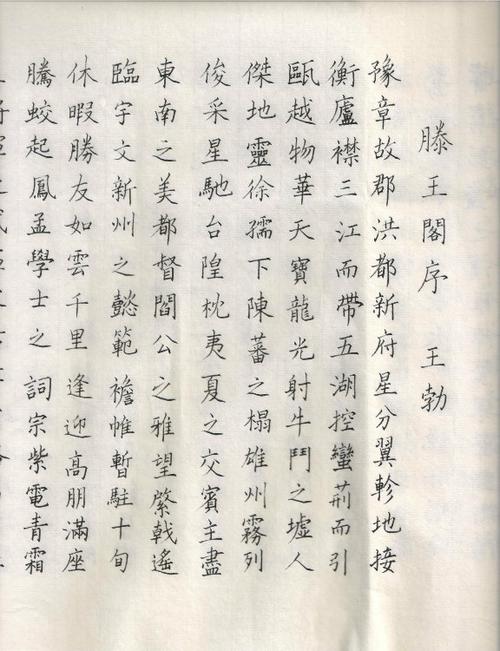 滕王閣序 王勃
豫章故郡洪都新府星分翼軫地接
衡廬襟三江而帶五湖控蠻荊而引
甌越物華天寶龍光射牛鬥之墟人
傑地靈徐孺下陳蕃之榻雄州霧列
俊采星馳台隍枕夷夏之交賓主盡
東南之美都督閻公之雅望棨戟遙
臨宇文新州之懿範襜帷暫駐十旬
休暇勝友如雲千里逢迎高朋滿座
騰蛟起鳳孟學士之詞宗紫電青霜